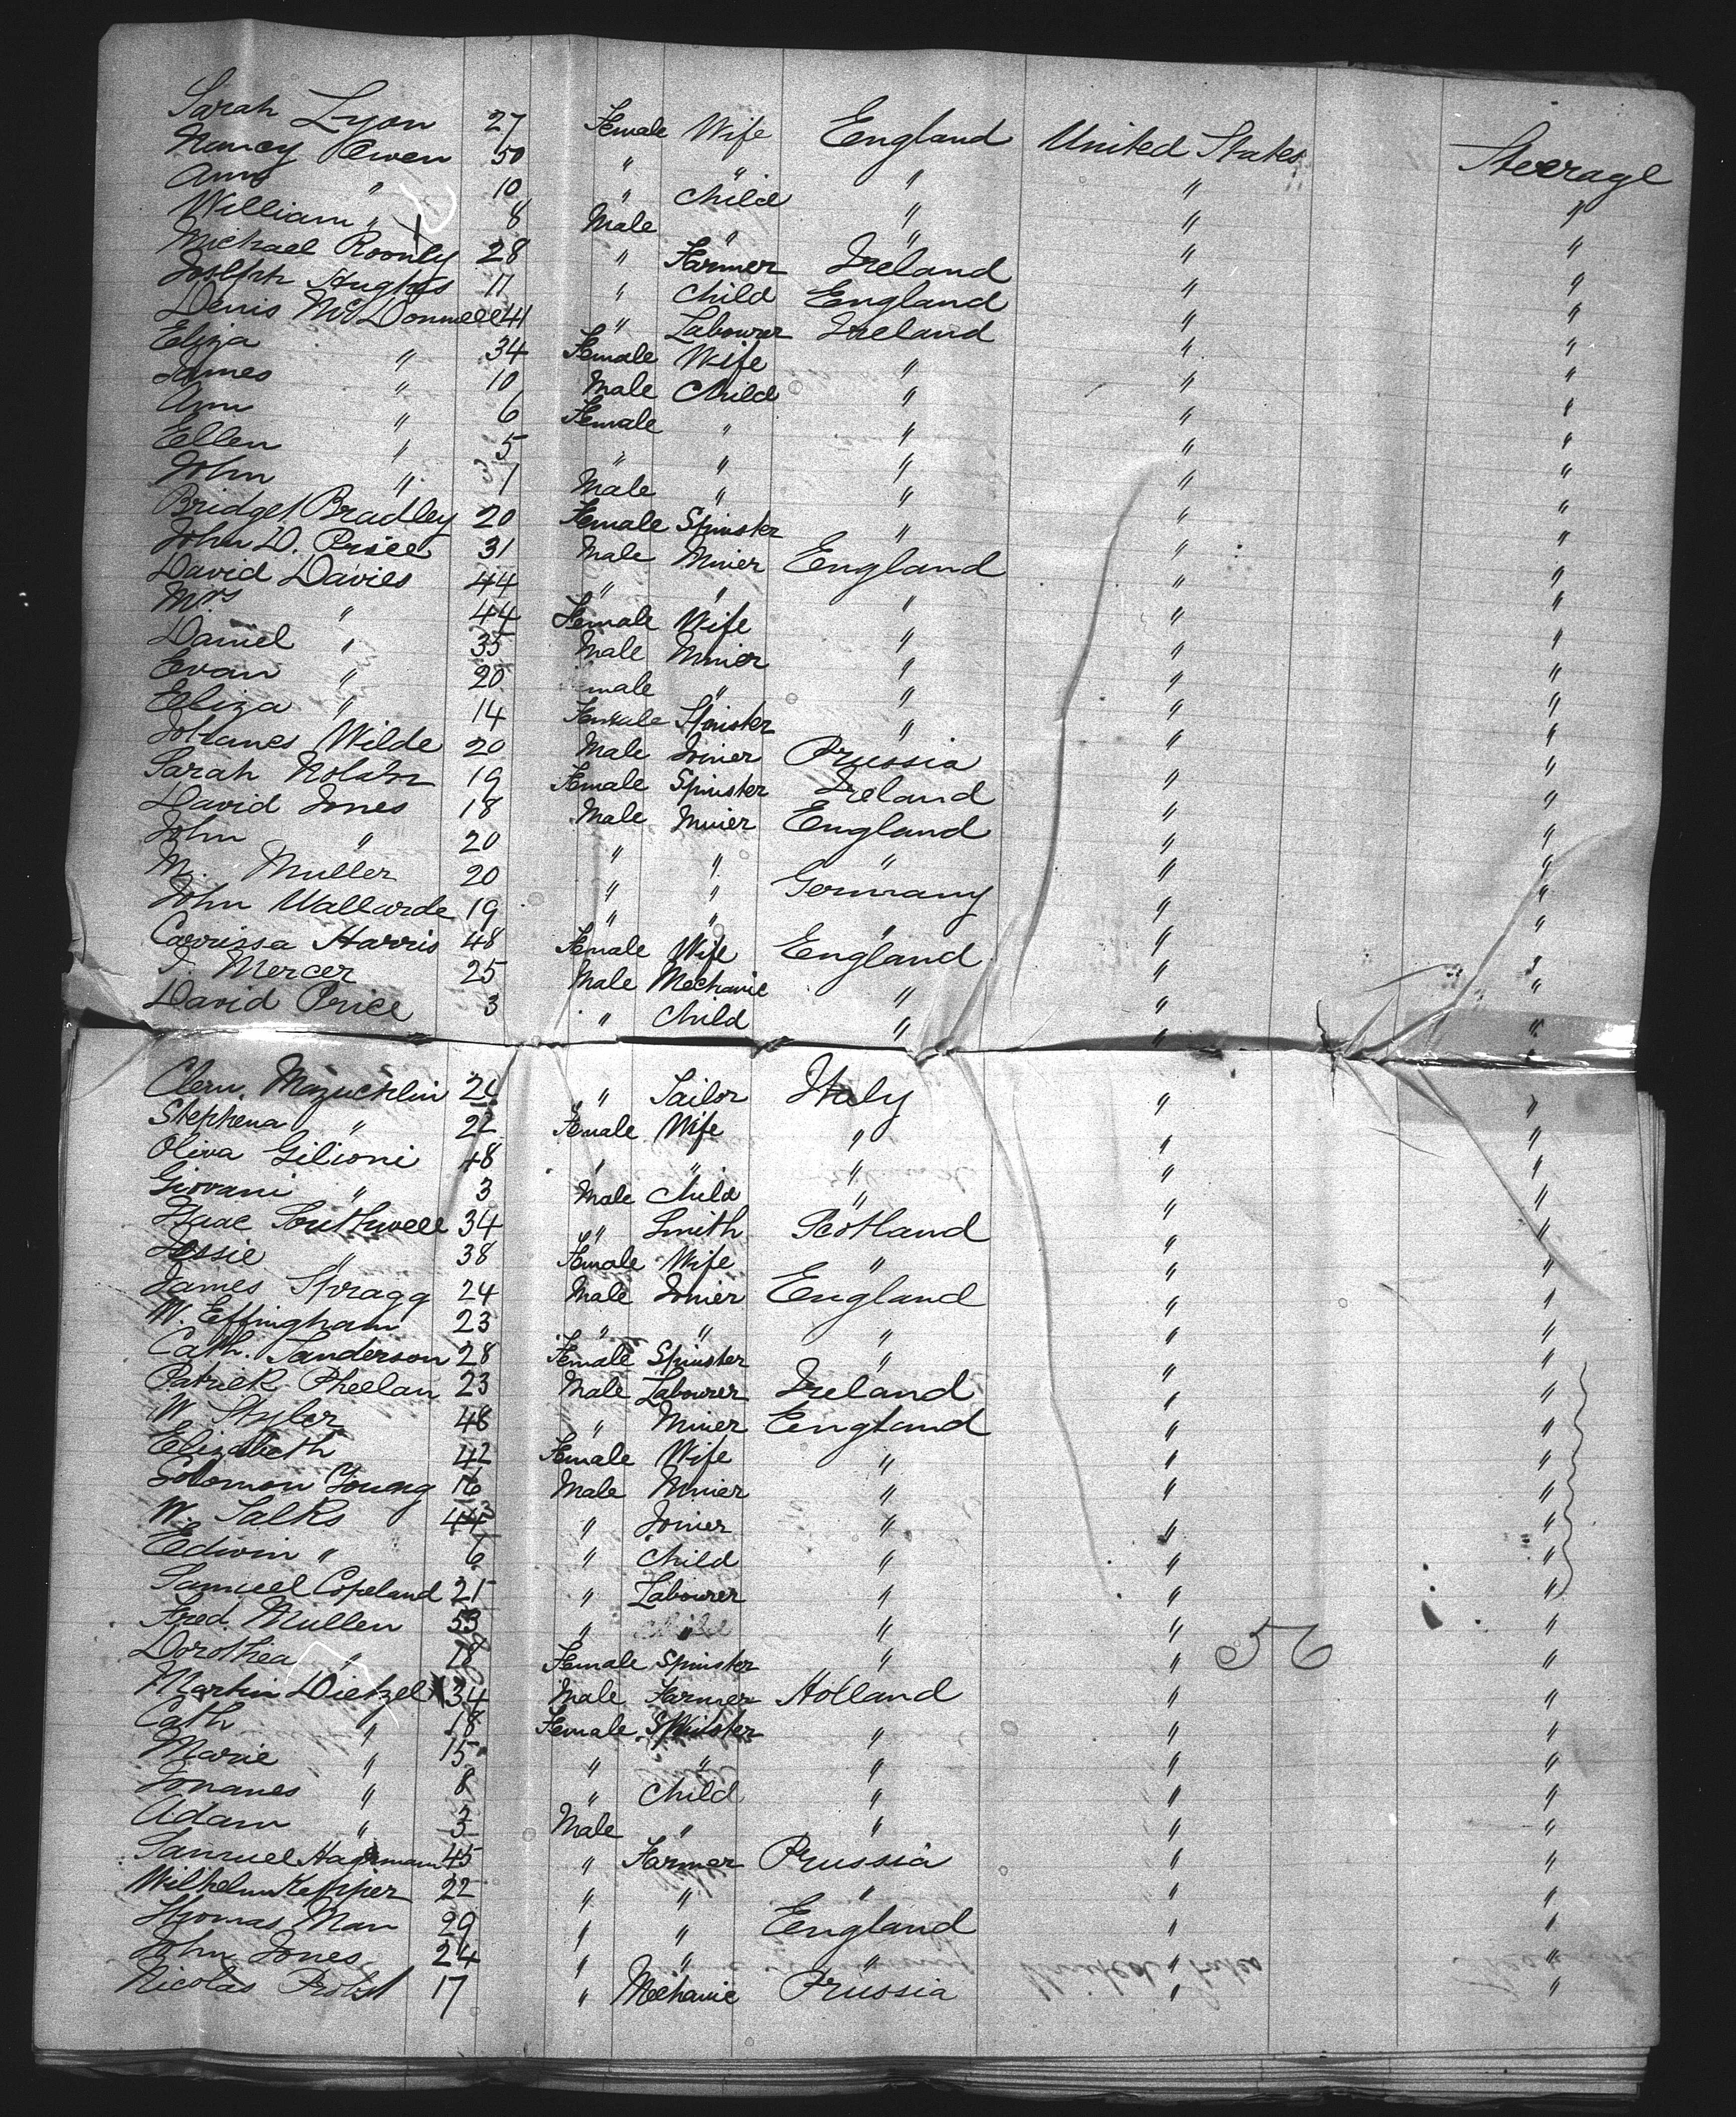 Sarah Lyon 27 Female Wife England United States Steerage
Nancy Owen 50 " " " " "
Ann " 10 " Child " " "
William " 8 Male " " " "
Michael Roonly 28 " Farmer Ireland " "
Joseph Hughes 11 " Child England " "
Denis McDonnell 41 " Labourer Ireland " "
Eliza " 34 Female Wife " " "
James " 10 Male Child " " "
Ann " 6 Female " " " "
Ellen " 5 " " " " "
John " 1 Male " " " "
Bridget Bradley 20 Female Spinster " " "
John D. Price 31 Male Miner England " "
David Davies 44 " " " " "
Mrs " 44 Female Wife " " "
Daniel " 35 Male Miner " " "
Evan " 20 male " " " "
Eliza " 14 Female Spinster " " "
Johanes Wilde 20 Male Joiner Prussia " "
Sarah 19 Female Spinster Ireland " "
David Jones 18 Male Miner England " "
John " 20 " " " " "
M. Muller 20 " " Germany " "
John Wallarde 19 " " " " "
Carrissa Harris 48 Female Wife England " "
T. Mercer 25 Male Mechanic " " "
David Price 3 " Child " " "
Clem. Mazucklin 26 " Tailor Italy " "
Stephena " 22 Female Wife " " "
Oliva Gilioni 48 " " " " "
Giovani " 3 Male Child " " "
Isaac Southwell 34 " Smith Scotland " "
Jessie " 38 Female Wife " " "
James Spragg 24 Male Joiner England " "
W. Effingham 23 " " " " "
Cath. Sanderson 28 Female Spinster " " "
Patrick Pheelan 23 Male Labourer Ireland " "
W. Styler 48 " Miner England " "
Elizabeth 42 Female Wife " " "
Solomon Young 16 Male Miner " " "
W. Salks " Joiner " " "
Edwin " 6 " Child " " "
Samuel Copeland 21 " Labourer " " "
Fred. Mullen 53 " " " " "
Dorothea " 18 Female Spinster " " 56 "
Martin Dietzel 34 Male Farmer Holland " "
Cath " 18 Female Spinster " " "
Marie " 15 " " " " "
Jonanes " 8 " Child " " "
Adam " 3 Male " " " "
Samuel Hagemann 45 " Farmer Prussia " "
Wilhelm Kepper 22 " " " " "
Thomas Man 29 " " England " "
John Jones 24 " " " " "
Nicolas Probst 17 " Mechanic Prussia " "